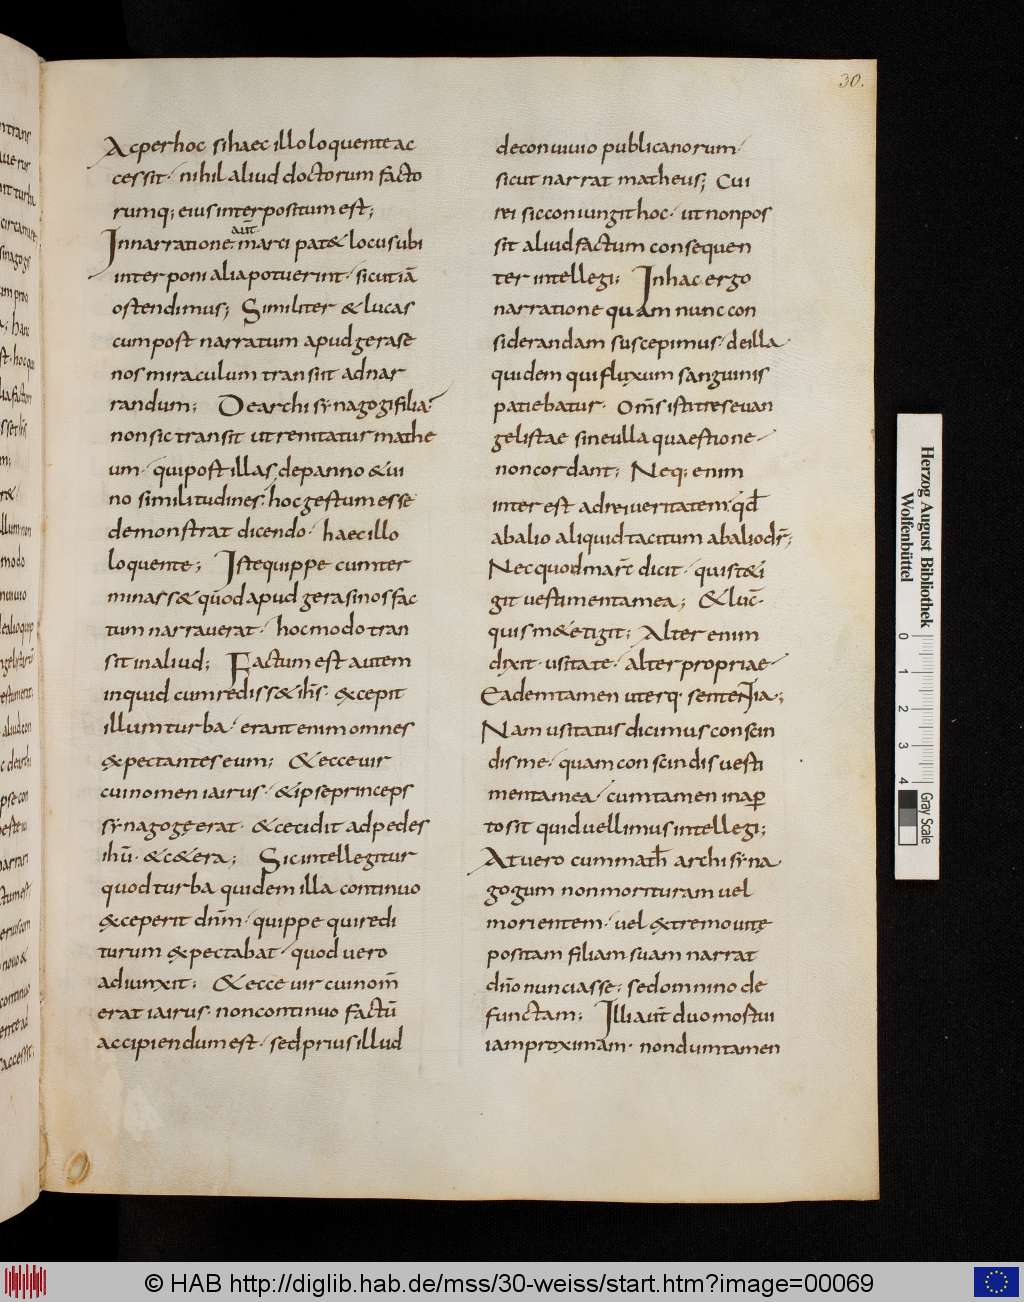 30.
Ac per hoc si haec illo loquente ac
cessit· nihil aliud doctorum facto
rumq; eius interpositum est;
aut̄
In narratione marci pat& locus ubi
interponi alia potuerint· sicut iā
ostendimus; Similiter & lucas
cum post narratum apud gerase
nos miraculum transiit ad nar
randum; De archisynagogi filia·
non sic transit ut renitatur mathe
um· qui post illas de panno & ui
no similitudines· hoc gestum esse
demonstrat dicendo· haec illo
loquente; Iste quippe cum ter
minass& quod apud gerasinos fac
tum narrauerat· hoc modo tran
sit in aliud; Factum est autem
inquid cum rediss& ih̄s· excepit
illum turba· erant enim omnes
expectantes eum; & ecce uir
cui nomen iairus· & ipse princeps
synagogę erat· & cecidit ad pedes
ihū· & c&era; Sic intellegitur
quod turba quidem illa continuo
exceperit dn̄m· quippe qui redi
turum expectabat· quod uero
adiunxit; & ecce uir cui nom̄
erat iairus· non continuo factū
accipiendum est· sed prius illud
de conuiuio publicanorum·
sicut narrat matheus; Cui
rei sic coniungit hoc· ut non pos
sit aliud factum consequen
ter intellegi; In hac ergo
narratione quam nunc con
siderandam suscepimus· de illa
quidem qui fluxum sanguinis
patiebatur· Om̄s isti tres euan
gelistae sine ulla quaestione
non cordant; Neq; enim
inter est ad rei ueritatem· qđ
ab alio aliquid tacitum ab alio dr̄;
Nec quod marc̄ dicit· quis t&i
git uestimenta mea; & luc̄·
quis me &etigit; Alter enim
dixit· usitate· alter propriae·
Eadem tamen uterq· sententia;
Nam usitatius dicimus conscin
dis me· quam conscindis uesti
menta mea· cum tamen in aper
to sit quid uellimus intellegi;
At uero cum math̄ archisyna
gogum non morituram uel
morientem· uel extremo uitę
positam filiam suam narrat
dn̄o nunciasse· sed omnino de
functam; Illi aut̄ duo mostui
iam proximam· nondum tamen
Herzog August Bibliothek
Wolfenbüttel
0 1 2 3 4
Gray Scale
© HAB http://diglib.hab.de/mss/30-weiss/start.htm?image=00069